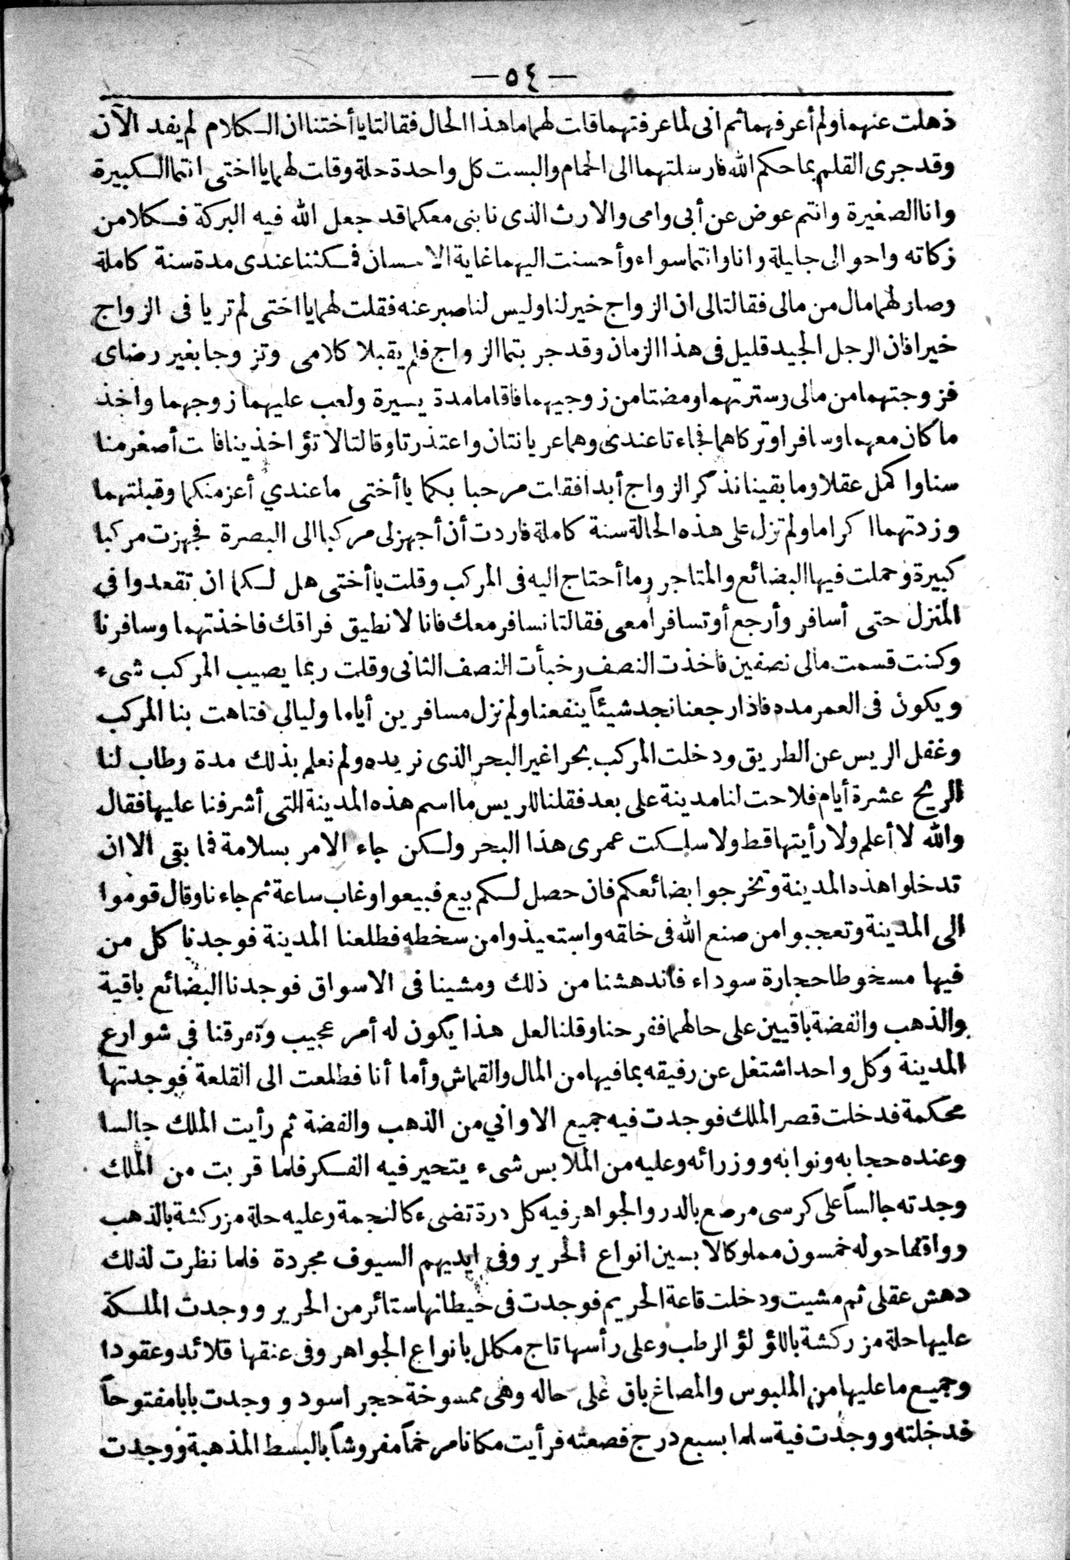 — ٥٤ —
ذهلت عنهما ولم أعرفهما ثم انى لما عرفتهما قات لهما ما هذا الحال فقالتا يا أختنا ان الكلام لم يفد الآن
وقد جرى القلم بما حكم الله فارسلتهما الى الحمام والبست كل واحدة حلة وقات لهما يا اختى انتما الكبيرة
وانا الصغيرة وانتم عوض عن أبى وامى والارث الذى نابنى معكما قد جعل الله فيه البركة فكلا من
زكاته واحوالى جليلة وانا وانتما سواء وأحسنت اليهما غاية الاحسان فمكثنا عندى مدة سنة كاملة
وصار لهما مال من مالى فقالتا لى ان الزواج خير لنا وليس لنا صبر عنه فقلت لهما يا اختى لم تريا فى الزواج
خيرا فان الرجل الجيد قليل فى هذا الزمان وقد جربتما الزواج فلم يقبلا كلامى وتزوجا بغير رضاى
فزوجتهما من مالى وسترتهما ومضتا من زوجيهما فاقاما مدة يسيرة ولعب عليهما زوجهما واخذ
ما كان معهما وسافرا وتركاهما فجاءتا عندى وهما عريانتان واعتذرتا وقالتا لا تؤاخذينا فانت أصغر منا
سنا وا كمل عقلا وما بقينا نذكر الزواج أبدا فقات مرحبا بكما يا أختى ما عندي أعز منكما وقبلتهما
وزدتهما ا كراما ولم نزل على هذه الحالة سنة كاملة فاردت أن أجهز لى مركبا الى البصرة فجهزت مركبا
كبيرة وحملت فيها البضائع والمتاجر وما أحتاج اليه فى المركب وقلت يا أختى هل لكما ان تقعدوا في
المنزل حتى أسافر وأرجع أو تسافرا معى فقالتا نسافر معك فانا لا نطيق فراقك فاخذتهما وسافرنا
وكنت قسمت مالى نصفين فاخذت النصف وخبأت النصف الثانى وقلت ربما يصيب المركب شىء
ويكون فى العمر مدده فاذا رجعنا نجد شيئاً ينفعنا ولم نزل مسافرين أياما وليالى فتاهت بنا المركب
وغفل الريس عن الطريق ودخلت المركب بحرا غير البحر الذى نريده ولم نعلم بذلك مدة وطاب لنا
الريح عشرة أيام فلاحت لنا مدينة على بعد فقلنا للريس ما اسم هذه المدينة التى أشرفنا عليها فقال
والله لا أعلم ولا رأيتها قط ولا سلكت عمرى هذا البحر ولكن جاء الامر بسلامة فما بقى الا ان
تدخلوا هذه المدينة وتخرجوا بضائعكم فان حصل لكم بيع فبيعوا وغاب ساعة ثم جاءنا وقال قوموا
الى المدينة وتعجبوا من صنع الله فى خلقه واستعيذوا من سخطه فطلعنا المدينة فوجدنا كل من
فيها مسخوطا حجارة سوداء فاندهشنا من ذلك ومشينا فى الاسواق فوجدنا البضائع باقية
والذهب والفضة باقيين على حالهما ففرحنا وقلنا لعل هذا يكون له أمر عجيب وتفرقنا في شوارع
المدينة وكل واحد اشتغل عن رفيقه بما فيها من المال والقماش وأما أنا فطلعت الى القلعة فوجدتها
محكمة فدخلت قصر الملك فوجدت فيه جميع الاواني من الذهب والفضة ثم رأيت الملك جالسا
وعنده حجابه ونوابه ووزرائه وعليه من الملابس شىء يتحير فيه الفكر فلما قربت من الملك
وجدته جالساً على كرسى مرصع بالدر والجواهر فيه كل درة تضىء كالنجمة وعليه حلة مزركشة بالذهب
وواقفا حوله خمسون مملوكا لابسين انواع الحرير وفى ايديهم السيوف مجردة فلما نظرت لذلك
دهش عقلى ثم مشيت ودخلت قاعة الحريم فوجدت فى حيطانها ستائر من الحرير ووجدت الملكة
عليها حلة مزركشة باللؤلؤ الرطب وعلى رأسها تاج مكلل بانواع الجواهر وفى عنقها قلائد وعقودا
وجميع ما عليها من الملبوس والمصاغ باق على حاله وهى ممسوخة حجر اسود ووجدت بابا مفتوحاً
فدخلته ووجدت فيه سلما بسبع درج فصعدته فرأيت مكانا مرخماً مفروشاً بالبسط المذهبة ووجدت